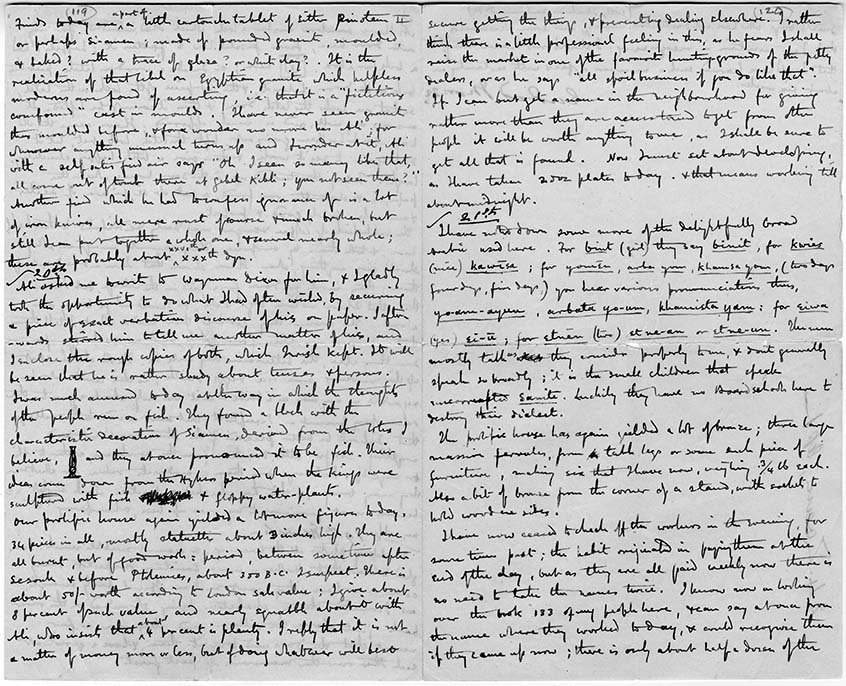 (119)
Finds today are a part of a little cartouche tablet of either Pinotem II
or perhaps Si-amen; made of pounded granite, moulded,
& baked? with a trace of glaze? or what clay?. It is the
realisation of that libel on Egyptian granite which helpless
moderns are fond of asserting, i.e. that it is a "fictitious
compound" cast in moulds. I have never seen granite
thus moulded before, & fore wonder no more his Ali; for
whenever anything unusual turns up and I wonder at it, Ali
with a self satisfied air says "Oh I seen so many like that,
all come out of tomb there at Gebel Kibli; you not seen them?"
Another find which he had to confess ignorance of is a lot
of iron knives, all mere rust of course & much broken, but
still I can put together a whole one, & several nearly whole;
these are probably about XXVIth or XXXth dyn.
20th
Ali asked me to write to Wayman Dixon for him, & I gladly
took the opportunity to do what I had often wished, by securing
a piece of exact verbatim discourse of his on paper. After-
-wards I stirred him to tell me another matter of his, and
I enclose the rough copies of both, which I wish kept. It will
be seen that he is rather shady about tenses & persons.
I was much amused today at the way in which the thoughts
of the people run on fish. They found a block with the
characteristic decoration of Si-amen, derived from the lotus I
believe, and they at once pronounced it to be fish. Their
ideas come down from the Hyksos period when the kings were
sculptured with fish & floppy water-plants.
Our prolific house again yielded a lot more figures today,
34 pieces in all, mostly statuettes about 3 inches high. They are
all burnt, but of good work: period, between sometime after
 & before Ptolemies, about 350 B.C. I suspect. There is
about 50/- worth according to London sale value; I give about
8 percent of such value, and nearly squabble about it with
Ali, who insists that about 4 percent is plenty. I reply that it is not
a matter of money more or less, but of doing whatever will best
(120)
secure getting the things, & preventing dealing elsewhere. I rather
think there is a little professional feeling in this, as he fears I shall
raise the market in one of the favourite hunting grounds of the petty
dealers, or as he says "all spoil business if you do like that".
If I can but get a name in the neighbourhood for giving
rather more than they are accustomed to get from other
people it will be worth anything to me, as I shall be sure to
get all that is found. Now I must set about developing,
as I have taken 2 doz plates today. & that means working till
about midnight.
21st
I have noted down some more of the delightfully broad
Arabic used here. For bint (girl) they say binit, for kwies
(nice) kawise; for yomēn, arba yom, khamsa yom, (two days
four days, five days,) you hear various pronunciations thus,
yo-am-ayen, arbata yo-um, khamista yam; for eiwa
(yes) ei-ū; for etnēn (two) et-ne-an or etne-un. The men
mostly talk as they consider properly to me, & don't generally
speak so broadly; it is the small children that speak
 Sanite. Luckily they have no Board schools here to
destroy their dialect.
The prolific house has again yielded a lot of bronze; three large
massive ferrules, from table legs or some such piece of
furniture, making six that I have now, weighing 3/4 lb each.
Also a bit of bronze from the corner of a stand, with sockets to
hold wooden sides.
I have now ceased to check off the workers in the evening, for
some time past; the habit originated in paying them at the
end of the day, but as they are all paid weekly now there is
no need to take the names twice. I know now on looking
over the book 133 of my people here, & can say at once from
the name where they worked today, & could recognise them
if they came up now; there is only about half a dozen of the